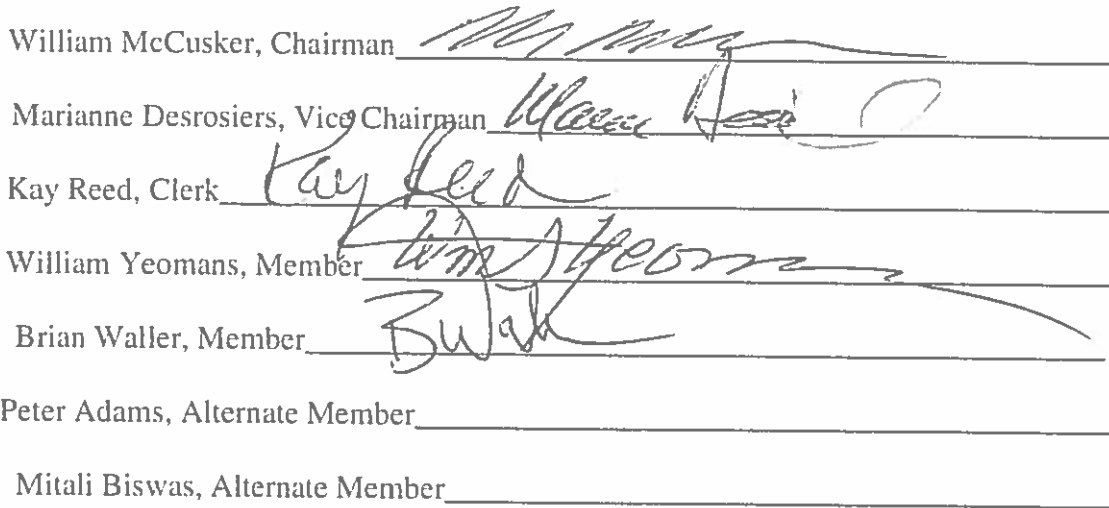 William McCusker, Chairman
Marianne Desrosiers, Vice Chairman
Kay Reed, Clerk Kay Reed
William Yeomans, Member Wm Yeoman
Brian Waller, Member
Peter Adams, Alternate Member
Mitali Biswas, Alternate Member